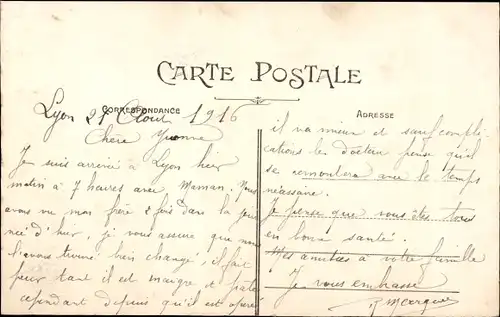 CARTE POSTALE
CORRESPONDANCE
ADRESSE
Lyon 21 Août 1916
Chère Yvonne
Je suis arrivé à Lyon hier
matin à 7 heures avec Maman. Nous
avons vu mon frère 2 fois dans la jour
née d'hier, je vous assure que nous
l'avons trouvé bien changé, il fait
peur tant il est maigre et pâle
cependant depuis qu'il est opéré
il va mieux et sauf compli
cations les docteur pense qu'il
se remontera avec le temps
néassaire.
Je pense que vous êtes tous
en bonne santé.
Mes amitiés à votre famille
Je vous embrasse